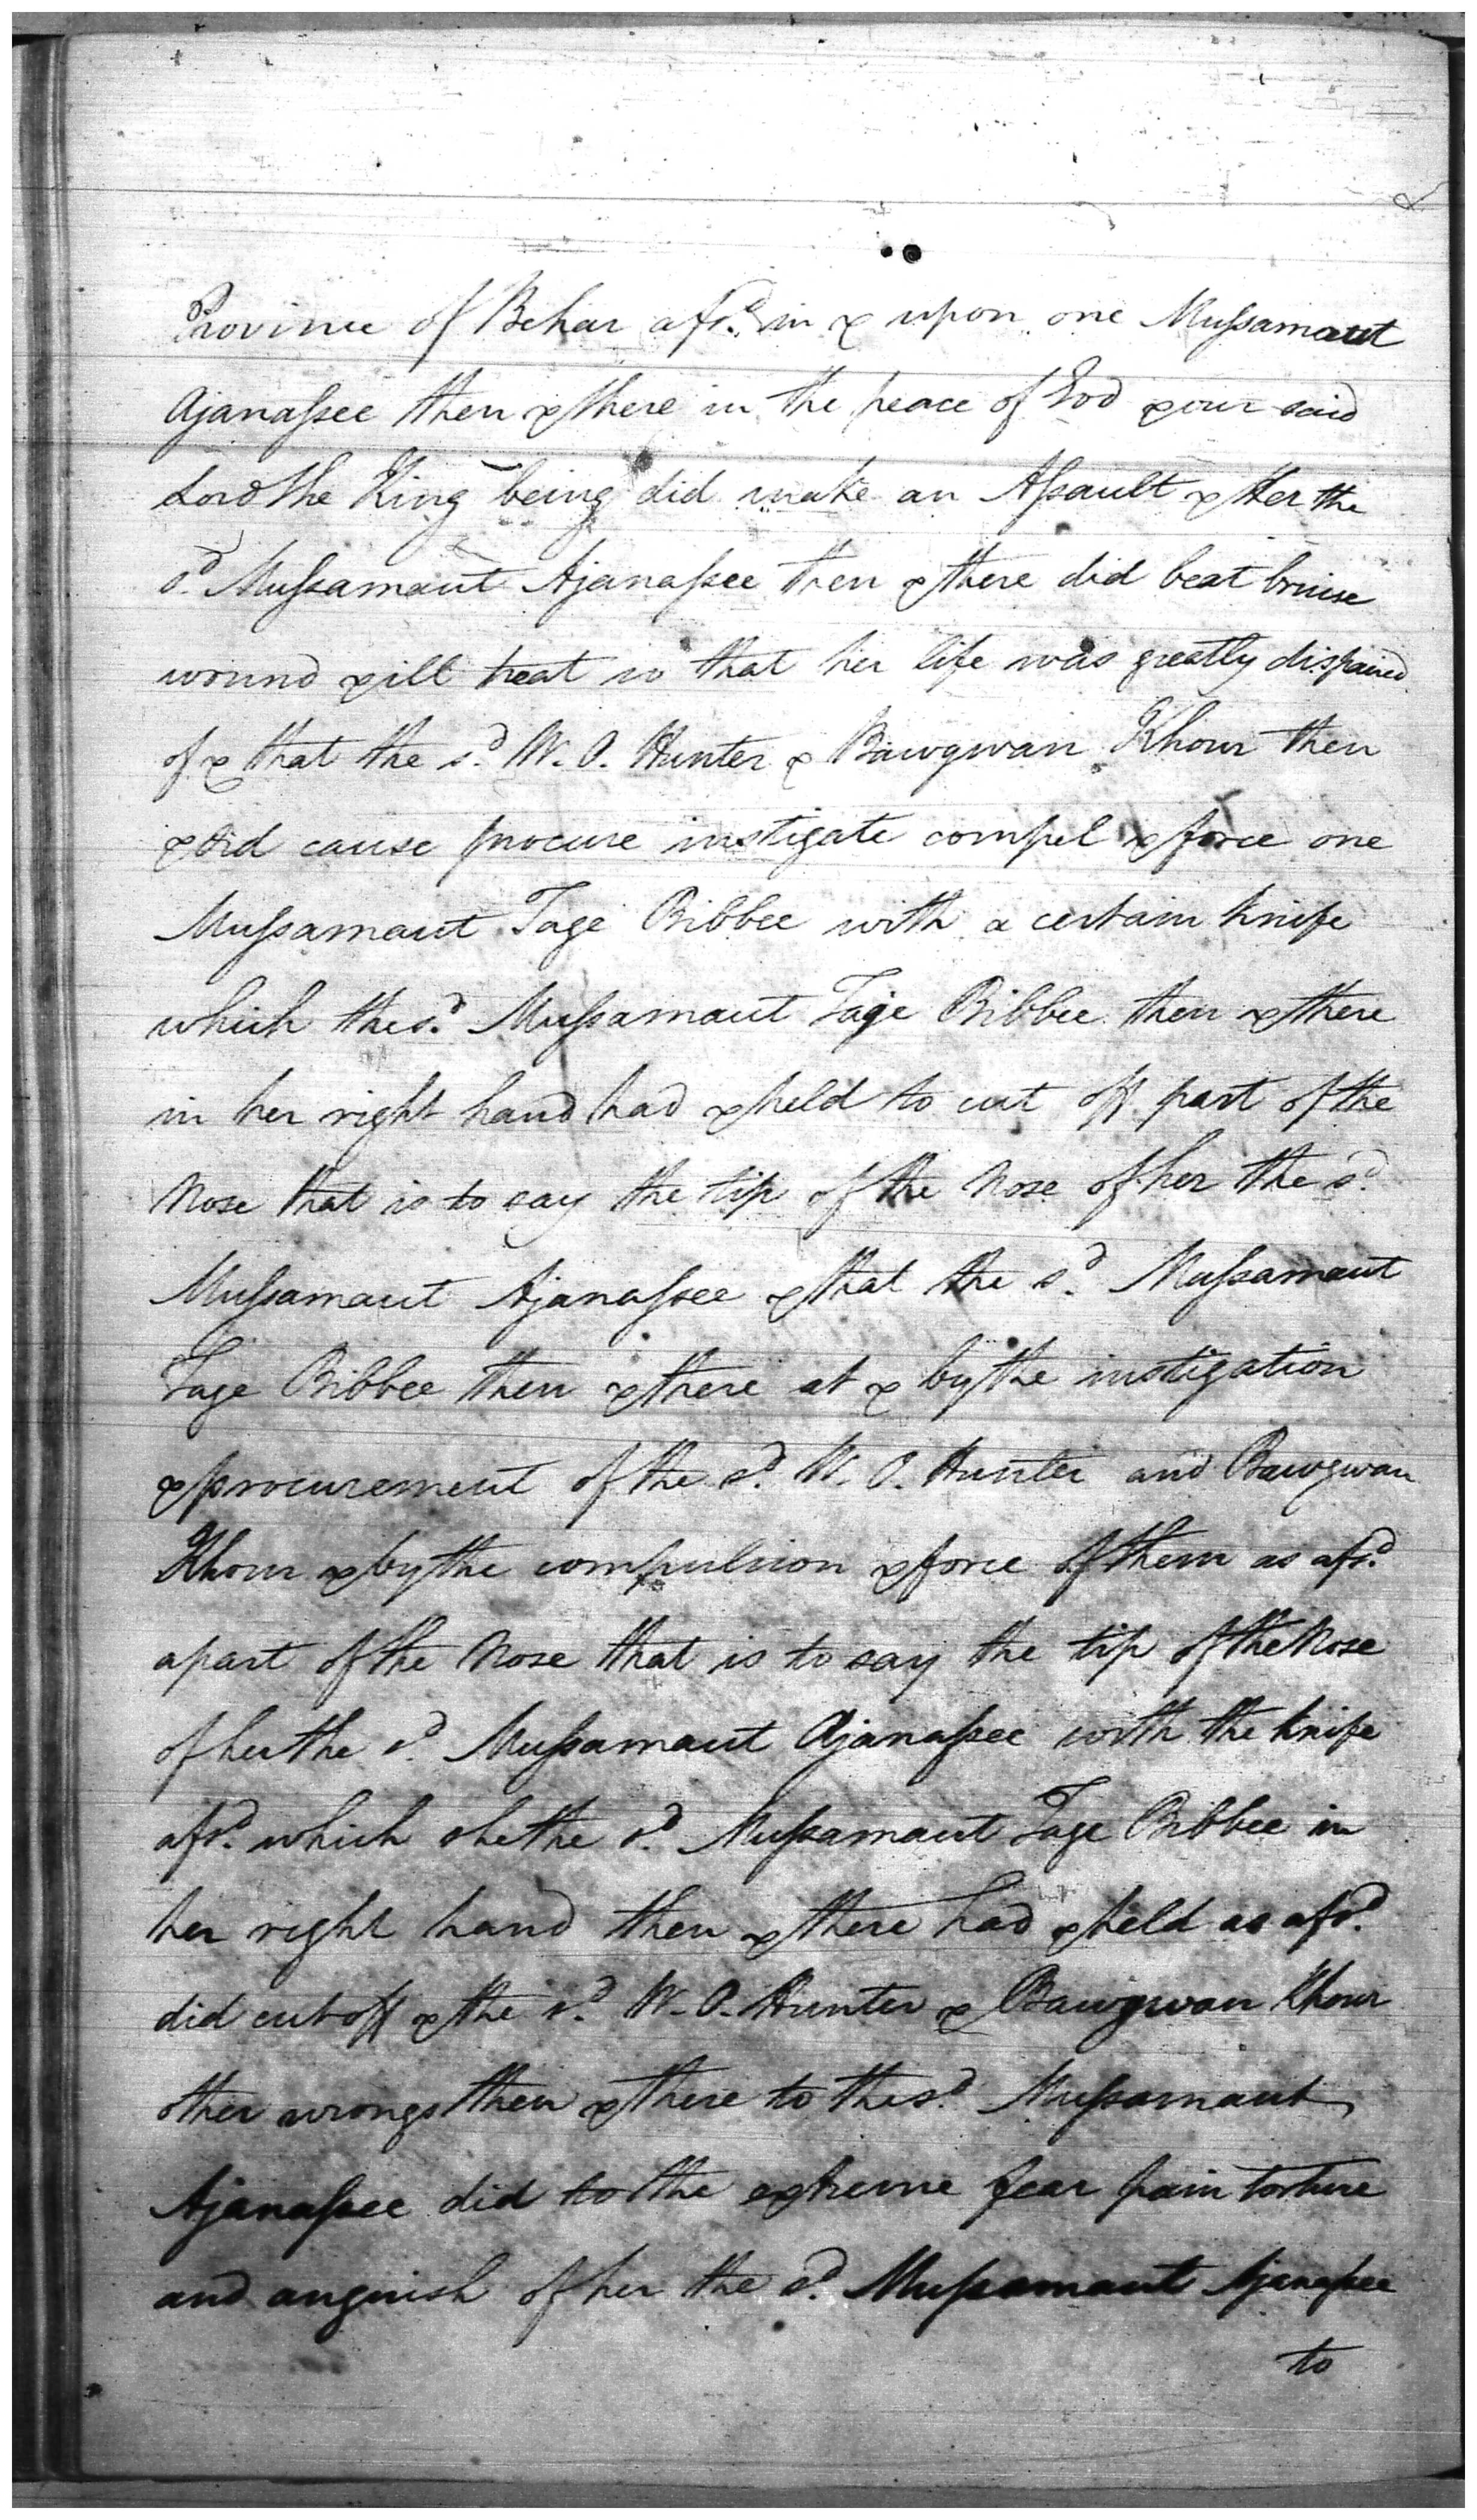 Province of Behar afsd. in & upon one Mussamaut
Ajanassee then & there in the peace of God & our said
Lord the King being did make an Assault & Her the
sd. Mussamaut Ajanassee then & there did beat bruise
wound & ill treat so that her life was greatly dispaired
of & that the sd. W. O. Hunter & Bawgwan Khour then
& did cause procure instigate compel & force one
Mussamaut Tage Bibbee with a certain knife
which the sd. Mussamaut Tage Bibbee then & there
in her right hand had & held to cut off part of the
Nose that is to say the tip of the Nose of her the sd.
Mussamaut Ajanassee & that the sd. Mussamaut
Tage Bibbee then & there at & by the instigation
& procurement of the sd. W. O. Hunter and Bawgwan
Khour & by the compulsion & force of them as afsd.
a part of the Nose that is to say the tip of the Nose
of her the sd. Mussamaut Ajanassee with the knife
afsd. which she the sd. Mussamaut Tage Bibbee in
her right hand then & there had & held as afsd.
did cut off & the sd. W. O. Hunter & Bawgwan Khour
other wrongs then & there to the sd. Mussamaut
Ajanassee did to the extreme fear pain torture
and anguish of her the sd. Mussamaut Ajanassee
to